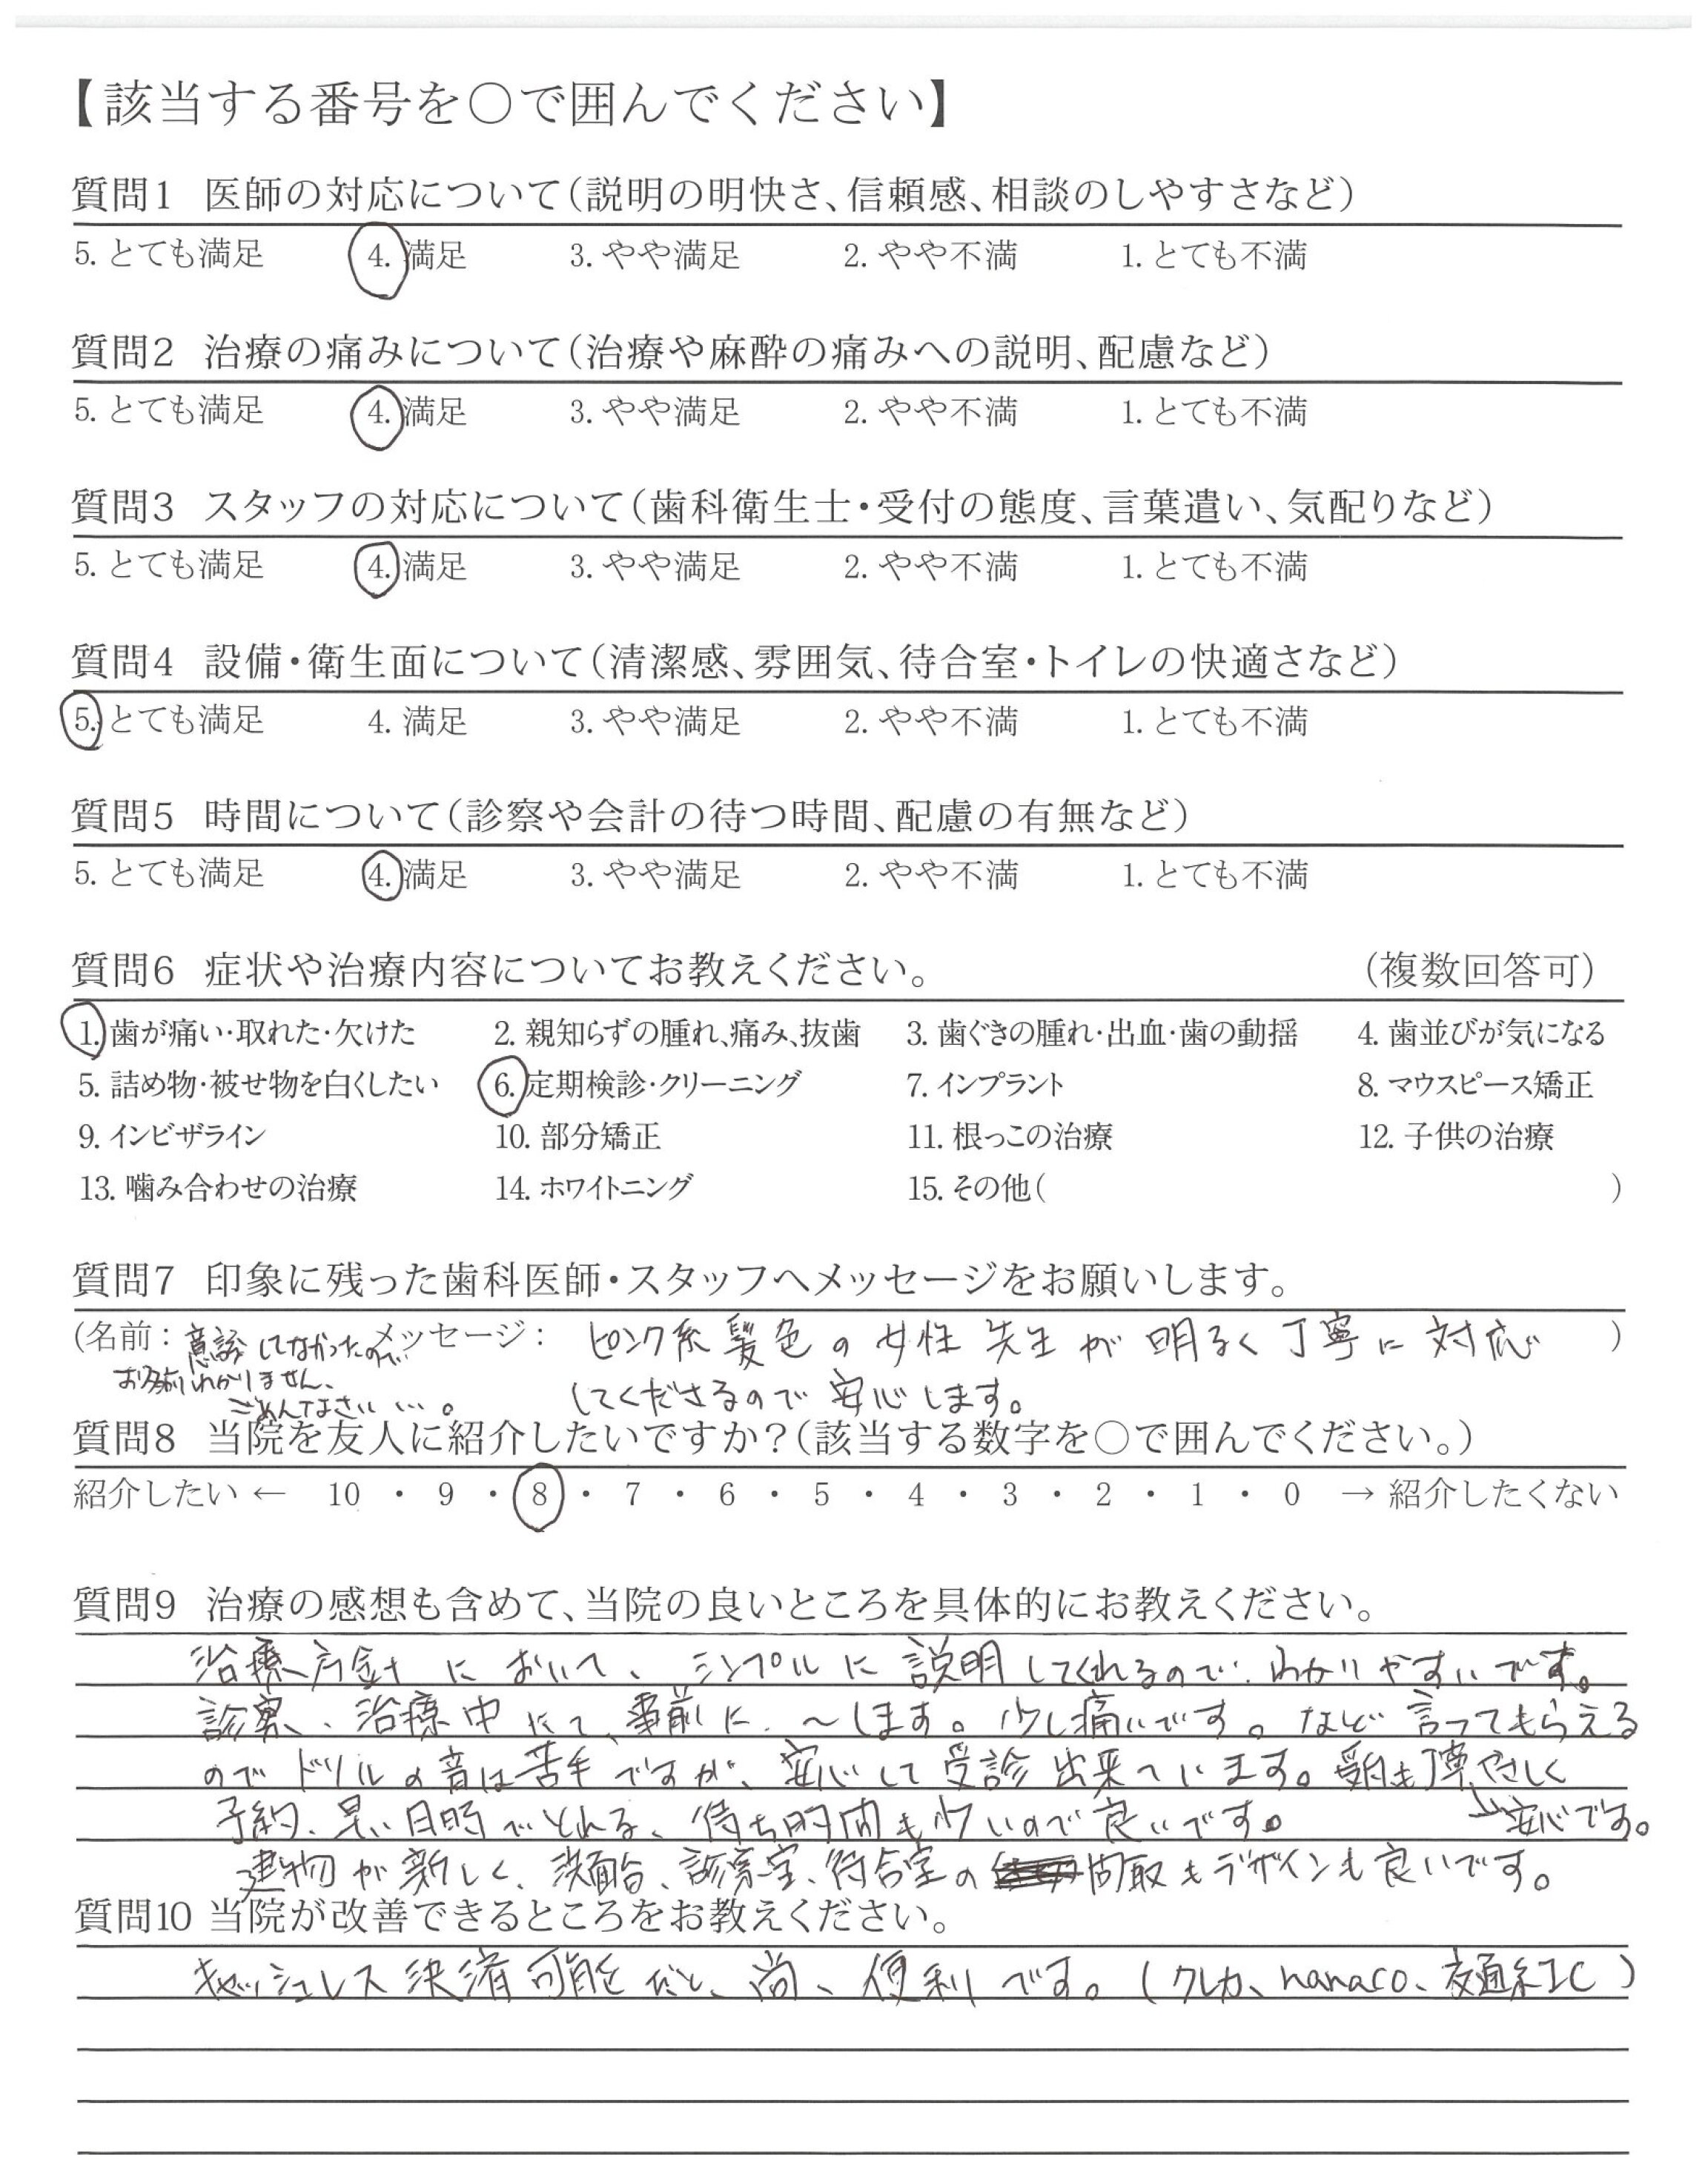 【該当する番号を○で囲んでください】
質問1 医師の対応について(説明の明快さ、信頼感、相談のしやすさなど)
5. とても満足 4. 満足 3. やや満足 2. やや不満 1. とても不満
質問2 治療の痛みについて(治療や麻酔の痛みへの説明、配慮など)
5. とても満足 4. 満足 3. やや満足 2. やや不満 1. とても不満
質問3 スタッフの対応について(歯科衛生士・受付の態度、言葉遣い、気配りなど)
5. とても満足 4. 満足 3. やや満足 2. やや不満 1. とても不満
質問4 設備・衛生面について(清潔感、雰囲気、待合室・トイレの快適さなど)
5. とても満足 4. 満足 3. やや満足 2. やや不満 1. とても不満
質問5 時間について(診察や会計の待つ時間、配慮の有無など)
5. とても満足 4. 満足 3. やや満足 2. やや不満 1. とても不満
質問6 症状や治療内容についてお教えください。 (複数回答可)
1. 歯が痛い・取れた・欠けた 2. 親知らずの腫れ、痛み、抜歯 3. 歯ぐきの腫れ・出血・歯の動揺 4. 歯並びが気になる
5. 詰め物・被せ物を白くしたい 6. 定期検診・クリーニング 7. インプラント 8. マウスピース矯正
9. インビザライン 10. 部分矯正 11. 根っこの治療 12. 子供の治療
13. 噛み合わせの治療 14. ホワイトニング 15. その他( )
質問7 印象に残った歯科医師・スタッフへメッセージをお願いします。
(名前: 意識してなかったので メッセージ: ピンク系髪色の女性先生が明るく丁寧に対応 )
お名前わかりません、
ごめんなさい…。 してくださるので安心します。
質問8 当院を友人に紹介したいですか?(該当する数字を○で囲んでください。)
紹介したい ← 10 ・ 9 ・ 8 ・ 7 ・ 6 ・ 5 ・ 4 ・ 3 ・ 2 ・ 1 ・ 0 → 紹介したくない
質問9 治療の感想も含めて、当院の良いところを具体的にお教えください。
治療方針において、シンプルに説明してくれるので、わかりやすいです。
診察、治療中にて、事前に、〜します。少し痛いです。など言ってもらえる
のでドリルの音は苦手ですが、安心して受診出来ています。受付も丁寧やさしく
予約、早い日時でとれる、待ち時間も少いので良いです。 →安心です。
建物が新しく、洗面台、診察室、待合室の間取もデザインも良いです。
質問10 当院が改善できるところをお教えください。
キャッシュレス決済可能だと、尚、便利です。(クレカ、nanaco、交通系IC)